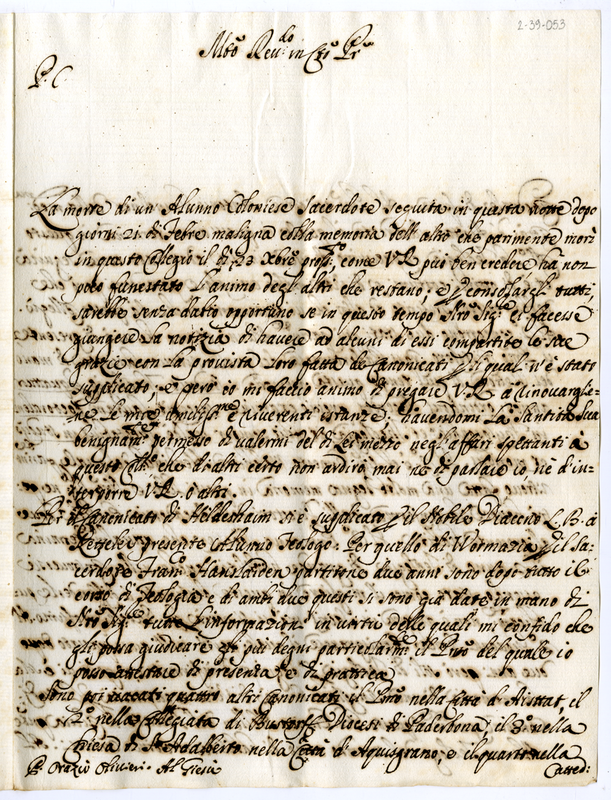 2-39-053
Mto Revdo in Xpo Pre
P. C
La morte di un Alunno Coloniese sacerdote seguita in questa notte dopo
giorni 21 di febre maligna colla memoria dell' altro che parimente morì
in questo Collegio il dì 23 Xbre pross.° come V R può ben credere hà non
poco funestato l'animo degl' altri che restano; e p consolareli tutti,
sarebbe senza dubio opportuno se in questo tempo Nro Sigre ci facesse
giungere la notizia di havere ad alcuni di essi compartite le sue
grazie con la provista loro fatta de Canonicati p li quali n'è stato
supplicato, e però io mi faccio animo di pregare V R à rinovargliene
le mie umilissme e riverenti istanze, havendomi la Santità Sua
benignamte permesso di valermi del di Lei mezzo negl' affari spettanti a
questo Collo che di altri certo non ardirò mai nè di parlare io, nè d'in-
terporre V R. o altri.
Per il Canonicato di Heldesheim si è supplicato p il Nobile Diacono L. B. à
Ketteler presente Alunno Teologo. Per quello di Wormazia p il Sa-
cerdote Franco Hanslaiden partitone due anni sono dopo tutto il
corso di Teologia e di ambi due questi si sono già date in mano di
Nro Sigre tutte l'informazioni in virtù delle quali mi confido che
gli possa giudicare gli più degni particolarmte il Pmo del quale io
posso attestare di presenza, e di prattica
Sono poi vacati quattro altri Canonicati il Pmo nella Città d'Aistat, il
2° nella Collegiata di Bustorff Diocesi di Paderbona, il 3° nella
Chiesa di S. Adalberto nella Città di Aquisgrano, e il quarto nella
P. Orazio Olivieri. Al Giesù
Catted: